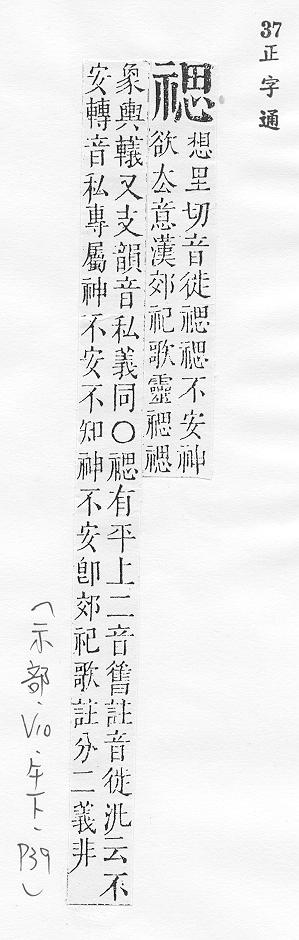 37 正字通
禗
想里切音徙禗禗不安神
欲厺意漢郊祀歌靈禗禗
象輿轙又支韻音私義同〇禗有平上二音舊註音徙汎云不
安轉音私專屬神不安不知神不安卽郊祀歌註分二義非
(示部、V10、午下、P39)